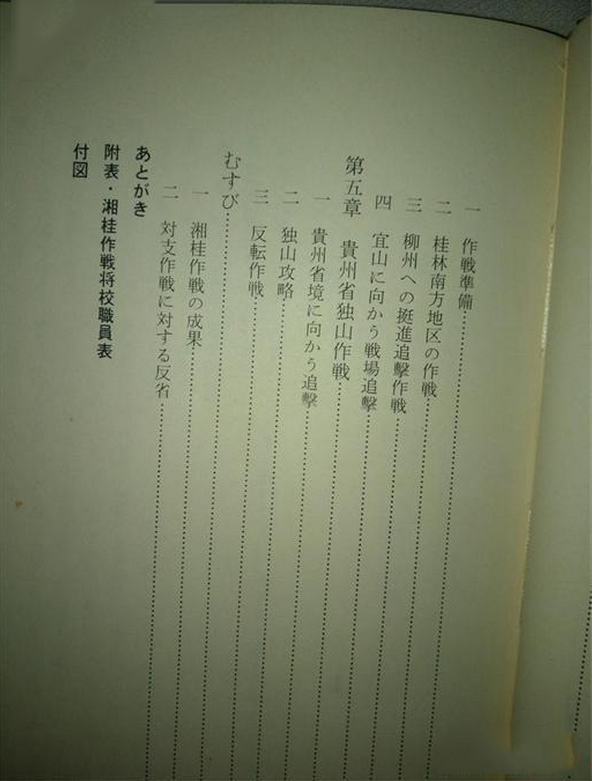 一　作戦準備
二　桂林南方地区の作戦
三　柳州への挺進追撃作戦
四　宜山に向かう戦場追撃
第五章　貴州省独山作戦
一　貴州省境に向かう追撃
二　独山攻略
三　反転作戦
むすび
一　湘桂作戦の成果
二　対支作戦に対する反省
あとがき
附表・湘桂作戦将校職員表
付図